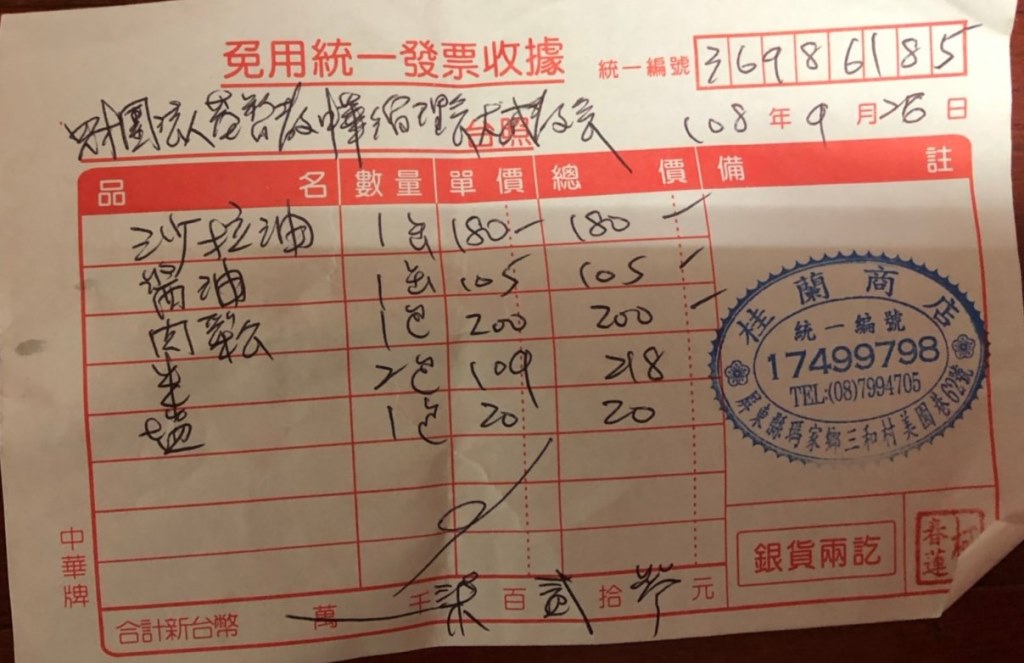 免用統一發票收據
統一編號 36986185
財團法人基督教中華循理會
台照
108年9月26日
品名 數量 單價 總價 備註
沙拉油 1缶 180- 180
醬油 1缶 105 105
肉鬆 1包 200 200
米 2包 109 218
塩 1包 20 20
桂蘭商店
統一編號
17499798
TEL:(08)7994705
屏東縣瑪家鄉三和村美園巷62號
銀貨兩訖
春蓮
中華牌
合計新台幣 萬 千 柒 百 貳 拾 元